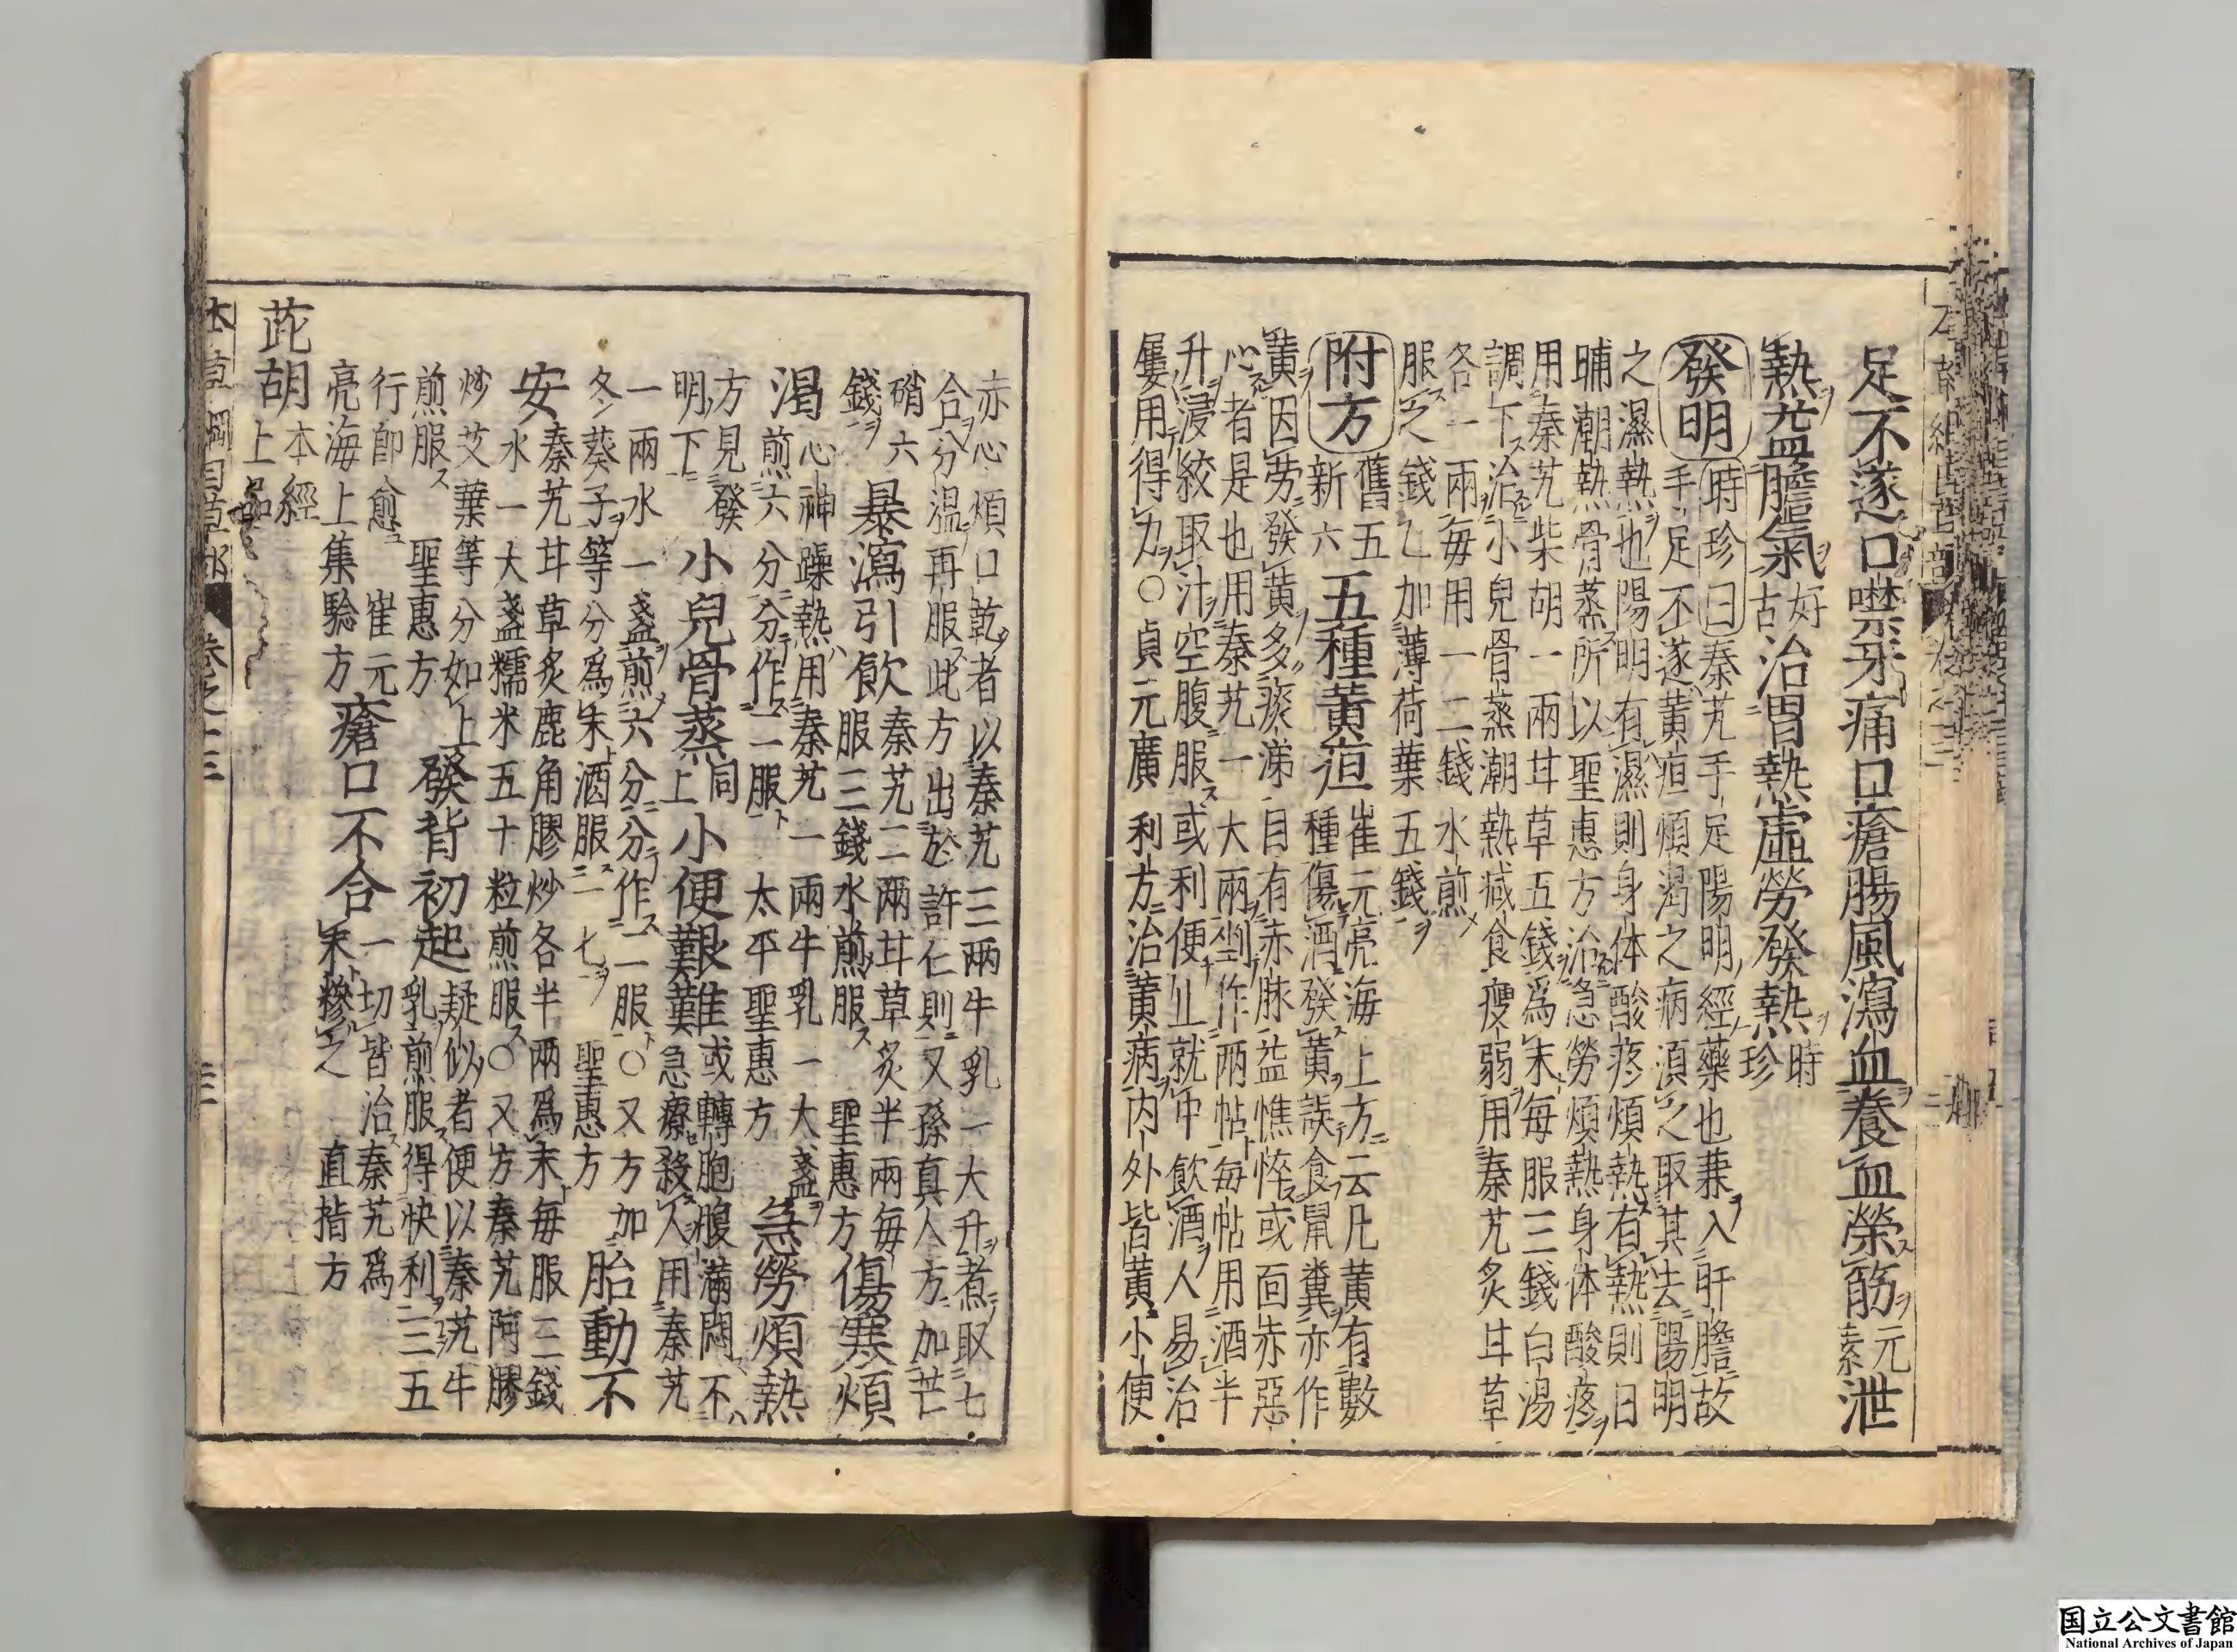 足不遂口噤牙痛口瘡腸風瀉血養血榮筋元素泄
熱益膽氣好古治胃熱虛勞發熱時珍
發明時珍曰秦艽手足陽明經藥也兼入肝膽故
手足不遂黃疸煩渴之病須之取其去陽明
之濕熱也陽明有濕則身体酸疼煩熱有熱則日
晡潮熱骨蒸所以聖惠方治急勞煩熱身体酸疼
用秦艽柴胡一兩甘草五錢爲末每服三錢白湯
調下治小兒骨蒸潮熱減食瘦弱用秦艽炙甘草
各一兩每用一二錢水煎
服之錢乙加薄荷葉五錢
附方舊五新六五種黃疸崔元亮海上方云凡黃有數
種傷酒發黃誤食鼠糞亦作
黃因勞發黃多痰涕目有赤脉益憔悴或面赤惡
心者是也用秦艽一大兩剉作兩帖每帖用酒半
升浸絞取汁空腹服或利便止就中飲酒人易治
屢用得力○貞元廣利方治黃病内外皆黃小便
赤心煩口乾者以秦艽三兩牛乳一大升煮取七
合分溫再服此方出於許仁則又孫真人方加芒
硝六錢暴瀉引飲秦艽二兩甘草炙半兩每服三錢水煎服聖惠方傷寒煩
渴心神躁熱用秦艽一兩牛乳一大盞煎六分分作二服太平聖惠方急勞煩熱
方見發明下小兒骨蒸同上小便艱難或轉胞腹滿悶不急療殺人用秦艽
一兩水一盞煎六分分作二服○又方加冬葵子等分爲末酒服一匕聖惠方胎動不
安秦艽甘草炙鹿角膠炒各半兩爲末每服三錢
水一大盞糯米五十粒煎服○又方秦艽阿膠
炒艾葉等分如上煎服聖惠方發背初起疑似者便以秦艽牛乳煎服得快利三五
行即愈崔元亮海上集驗方瘡口不合一切皆治秦艽爲末糝之直指方
茈胡本經上品
本草綱目草部卷之十三